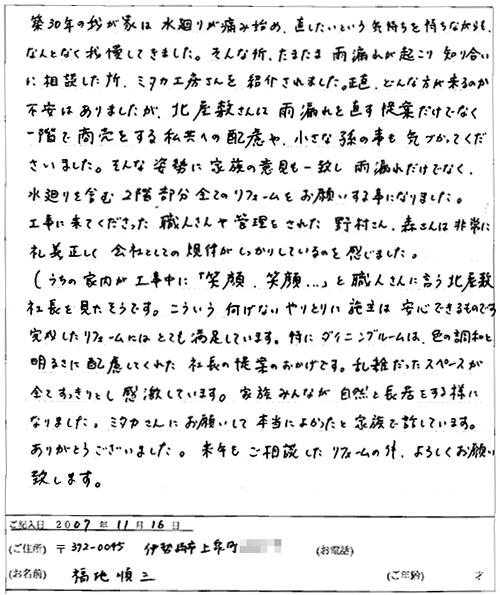 築30年の我が家は水廻りが痛み始め、直したいという気持ちを持ちながらも、
なんとなく我慢してきました。そんな折、たまたま雨漏れが起こり知り合い
に相談した所、ミタカ工房さんを紹介されました。正直、どんな方が来るのか
不安はありましたが、北屋敷さんは雨漏れを直す提案だけでなく
一階で商売をする私共への配慮や、小さな孫の事も気づかってくだ
さいました。そんな姿勢に家族の意見も一致し雨漏れだけでなく、
水廻りを含む2階部分全てのリフォームをお願いする事になりました。
工事に来てくださった職人さんや管理をされた野村さん、森さんは非常に
礼義正しく会社としての規律がしっかりしているのを感じました。
(うちの家内が工事中に「笑顔、笑顔...」と職人さんに言う北屋敷
社長を見たそうです。こういう何げないやりとりに施主は安心できるものです
完成したリフォームにはとても満足しています。特にダイニングルームは、色の調和と
明るさに配慮してくれた社長の提案のおかげです。乱雑だったスペースが
全てすっきりとし感激しています。家族みんなが自然と長居をする様に
なりました。ミタカさんにお願いして本当によかったと家族で話しています。
ありがとうございました。来年もご相談したリフォームの件、よろしくお願い
致します。
ご記入日 2007年11月16日
(ご住所) 〒372-0045 伊勢崎市上泉町 (お電話)
(お名前) 福地順三 (ご年齢) 才